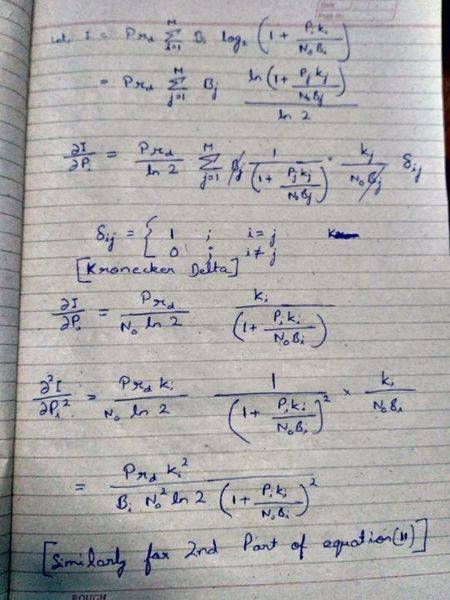 Let I = P r_d ∑_{i=1}^{M} B_i log_2 (1 + P_i k_i / N_0 B_i)
= P r_d ∑_{j=1}^{M} B_j ln(1 + P_j k_j / N_0 B_j) / ln 2
∂I/∂P_i = P r_d / ln 2 ∑_{j=1}^{M} B_j 1 / (1 + P_j k_j / N_0 B_j) · k_j / N_0 B_j δ_ij
δ_ij = { 1 ; i = j
0 ; i ≠ j
[Kronecker Delta]
∂I/∂P_i = P r_d / N_0 ln 2 k_i / (1 + P_i k_i / N_0 B_i)
∂²I/∂P_i² = P r_d k_i / N_0 ln 2 1 / (1 + P_i k_i / N_0 B_i)² × k_i / N_0 B_i
= P r_d k_i² / B_i N_0² ln 2 (1 + P_i k_i / N_0 B_i)²
[Similarly for 2nd Part of equation(11)]
ROUGH